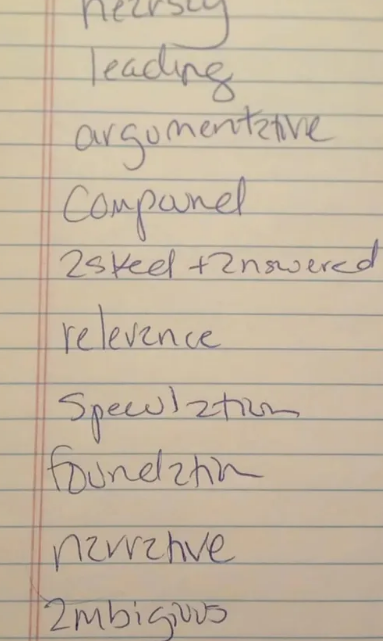 hearsay
leading
argumentative
Compound
asked + answered
relevance
speculation
foundation
narrative
ambigious